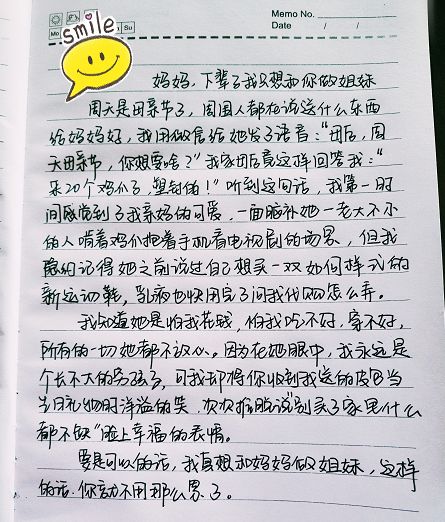 smile
Memo No.
Mo Su
Date / /
妈妈，下辈子我只想和你做姐妹
周天是母亲节了，周围人都在说送什么东西
给妈妈好，我用微信给她发了语音："母后，周
天母亲节，你想要啥？"我家母后竟这样回答我："
来20个鸡爪子，塑封的！"听到这句话，我第一时
间感觉到了我亲妈的可爱，一面脑补她一老大不小
的人啃着鸡爪抱着手机看电视剧的场景，但我
隐约记得她之前说过自己想买一双如何样式的
新运动鞋，乳液也快用完了问我代购怎么弄。
我知道她是怕我花钱，怕我吃不好，穿不好，
所有的一切她都不放心。因为在她眼中，我永远是
个长不大的孩子，可我却将你收到我送的皮包当
生日礼物时洋溢的笑，次次拍脸说"别买了家里什么
都不缺"脸上幸福的表情。
要是可以的话，我真想和妈妈做姐妹，这样
的话你就不用那么累了。